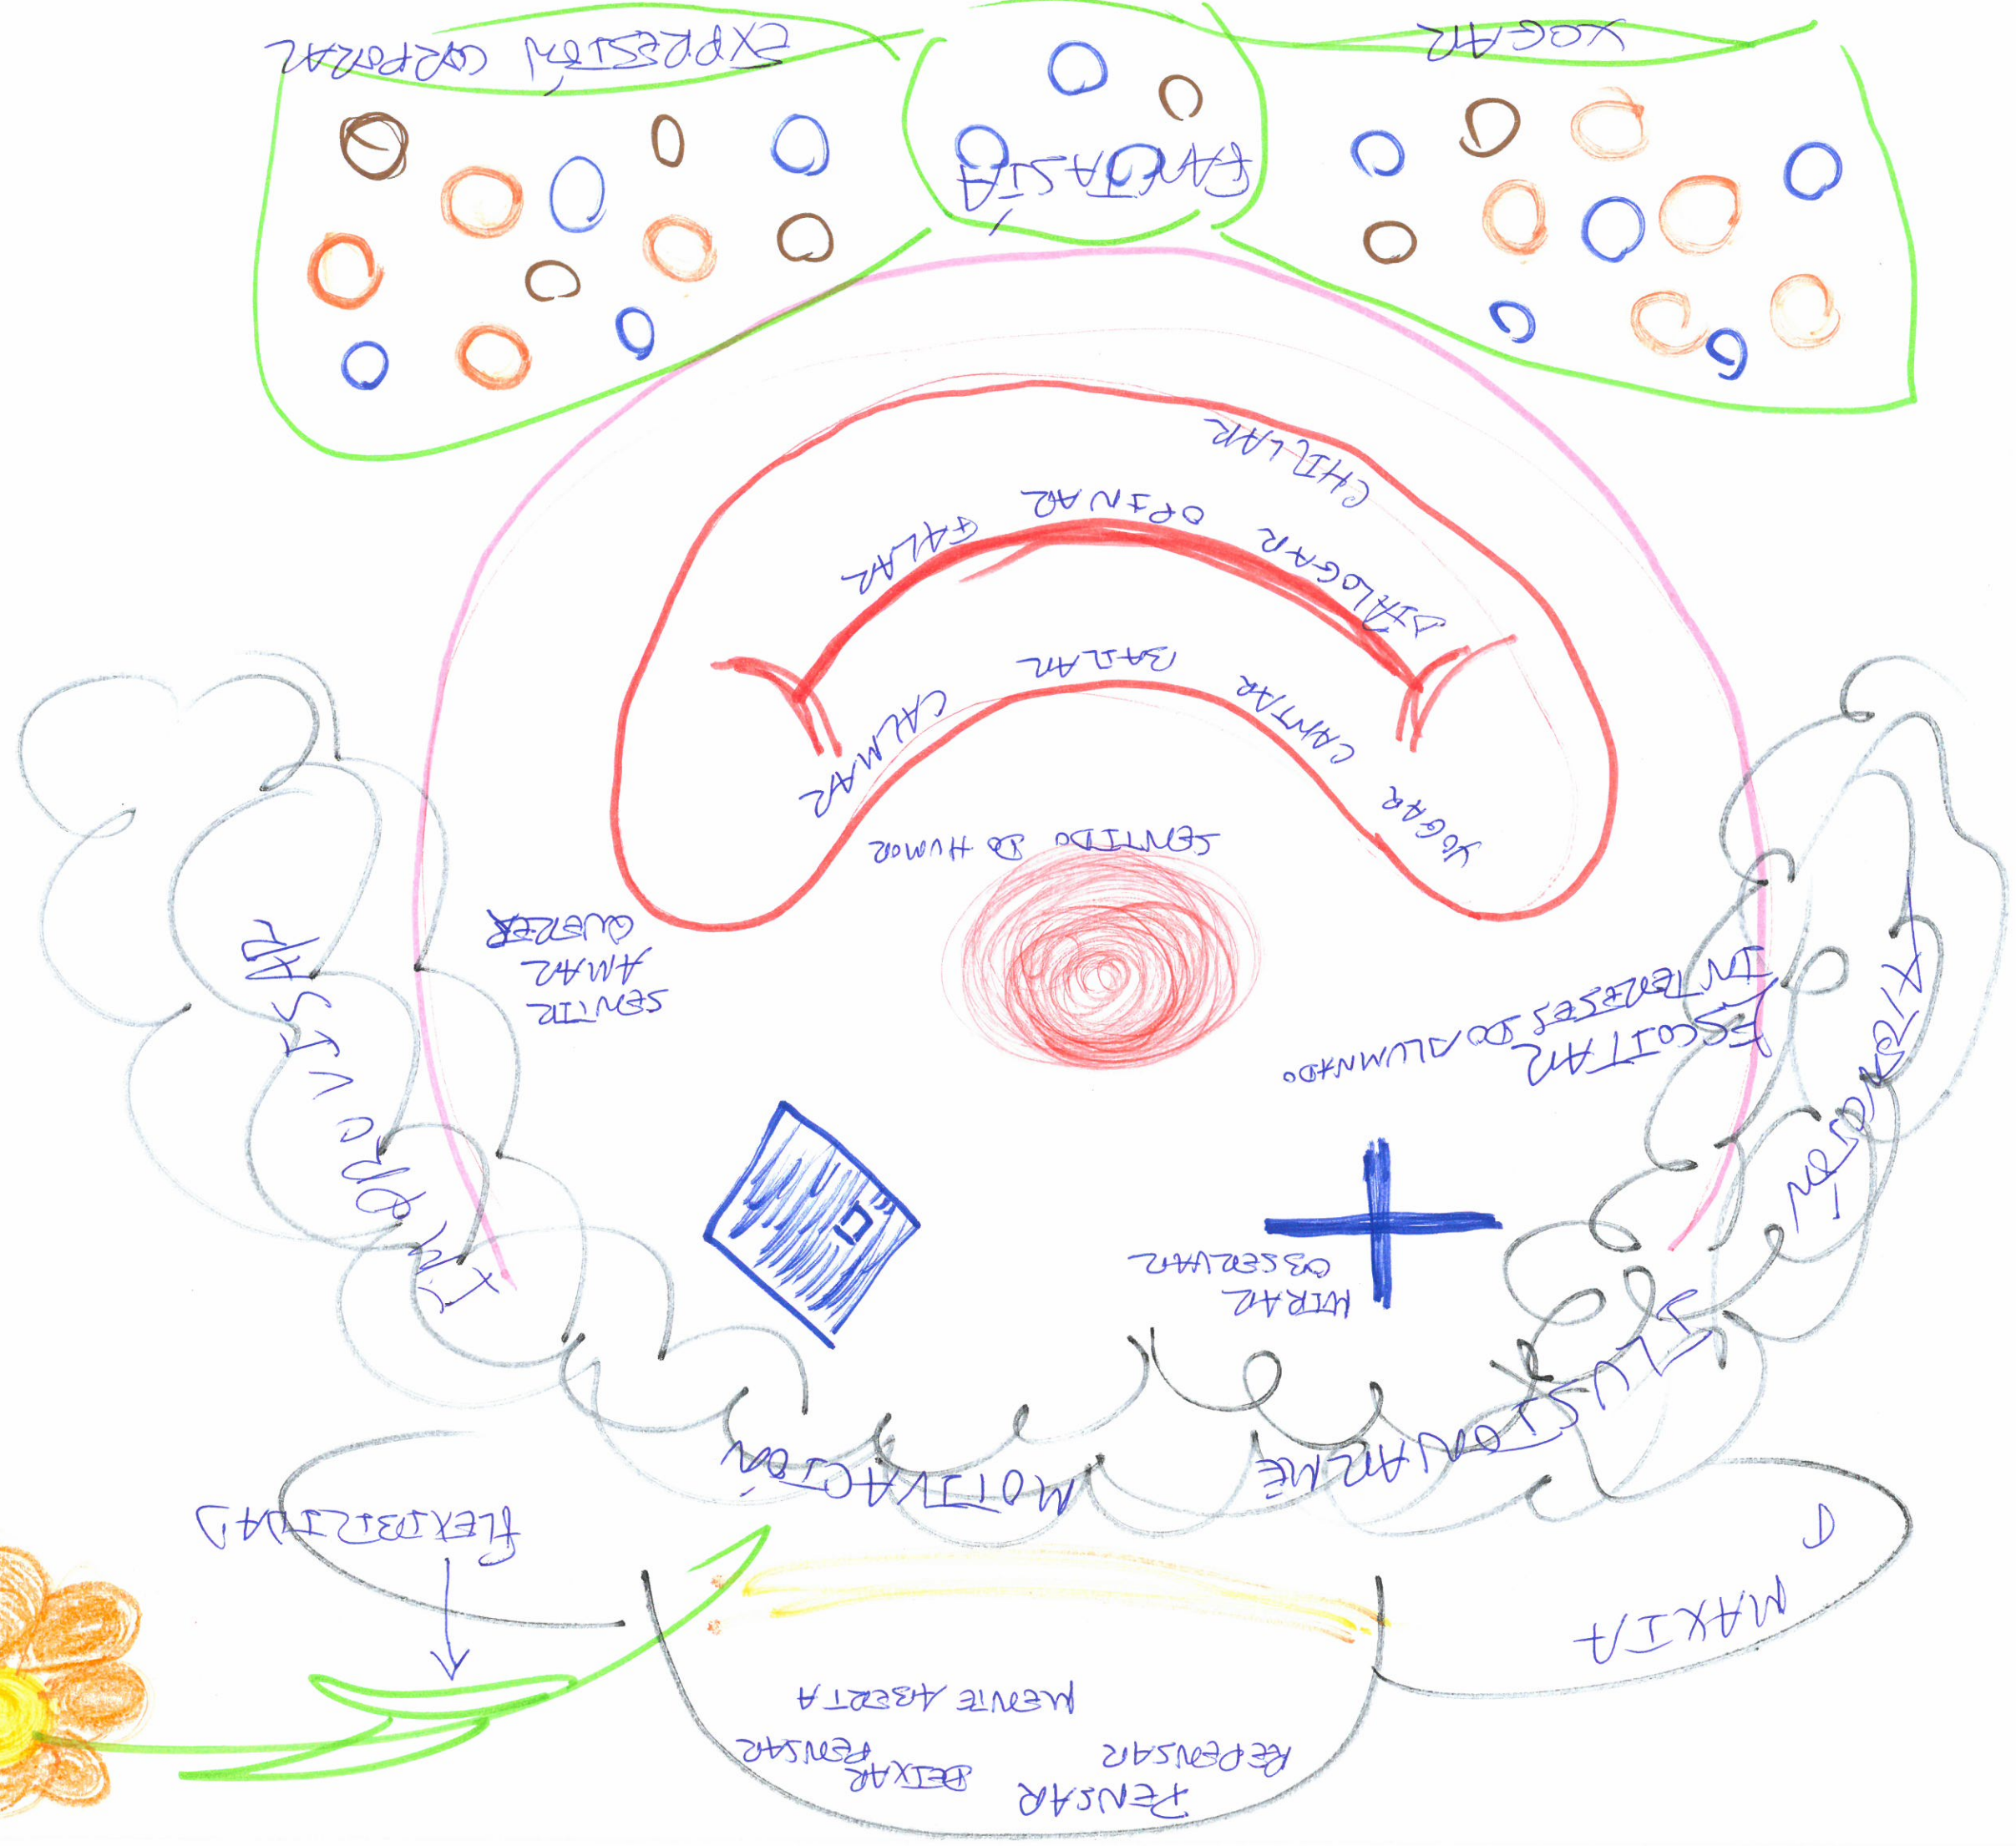 PENSAR
REPENSAR
DEIXAR
PENSAR
MENTE ABERTA
MAXIA
FLEXIBILIDAD
ILUSIONARME
MOTIVACIÓN
IMPROVISAR
MIRAR
OBSERVAR
ESCOITAR
INTERESES DO ALUMNADO
SENTIR
AMAR
QUERER
SENTIDO DO HUMOR
XOGAR CANTAR BAILAR CALMAR
DIALOGAR OPINAR FALAR
CHILLAR
FANTASÍA
XOGAR
EXPRESIÓN CORPORAL